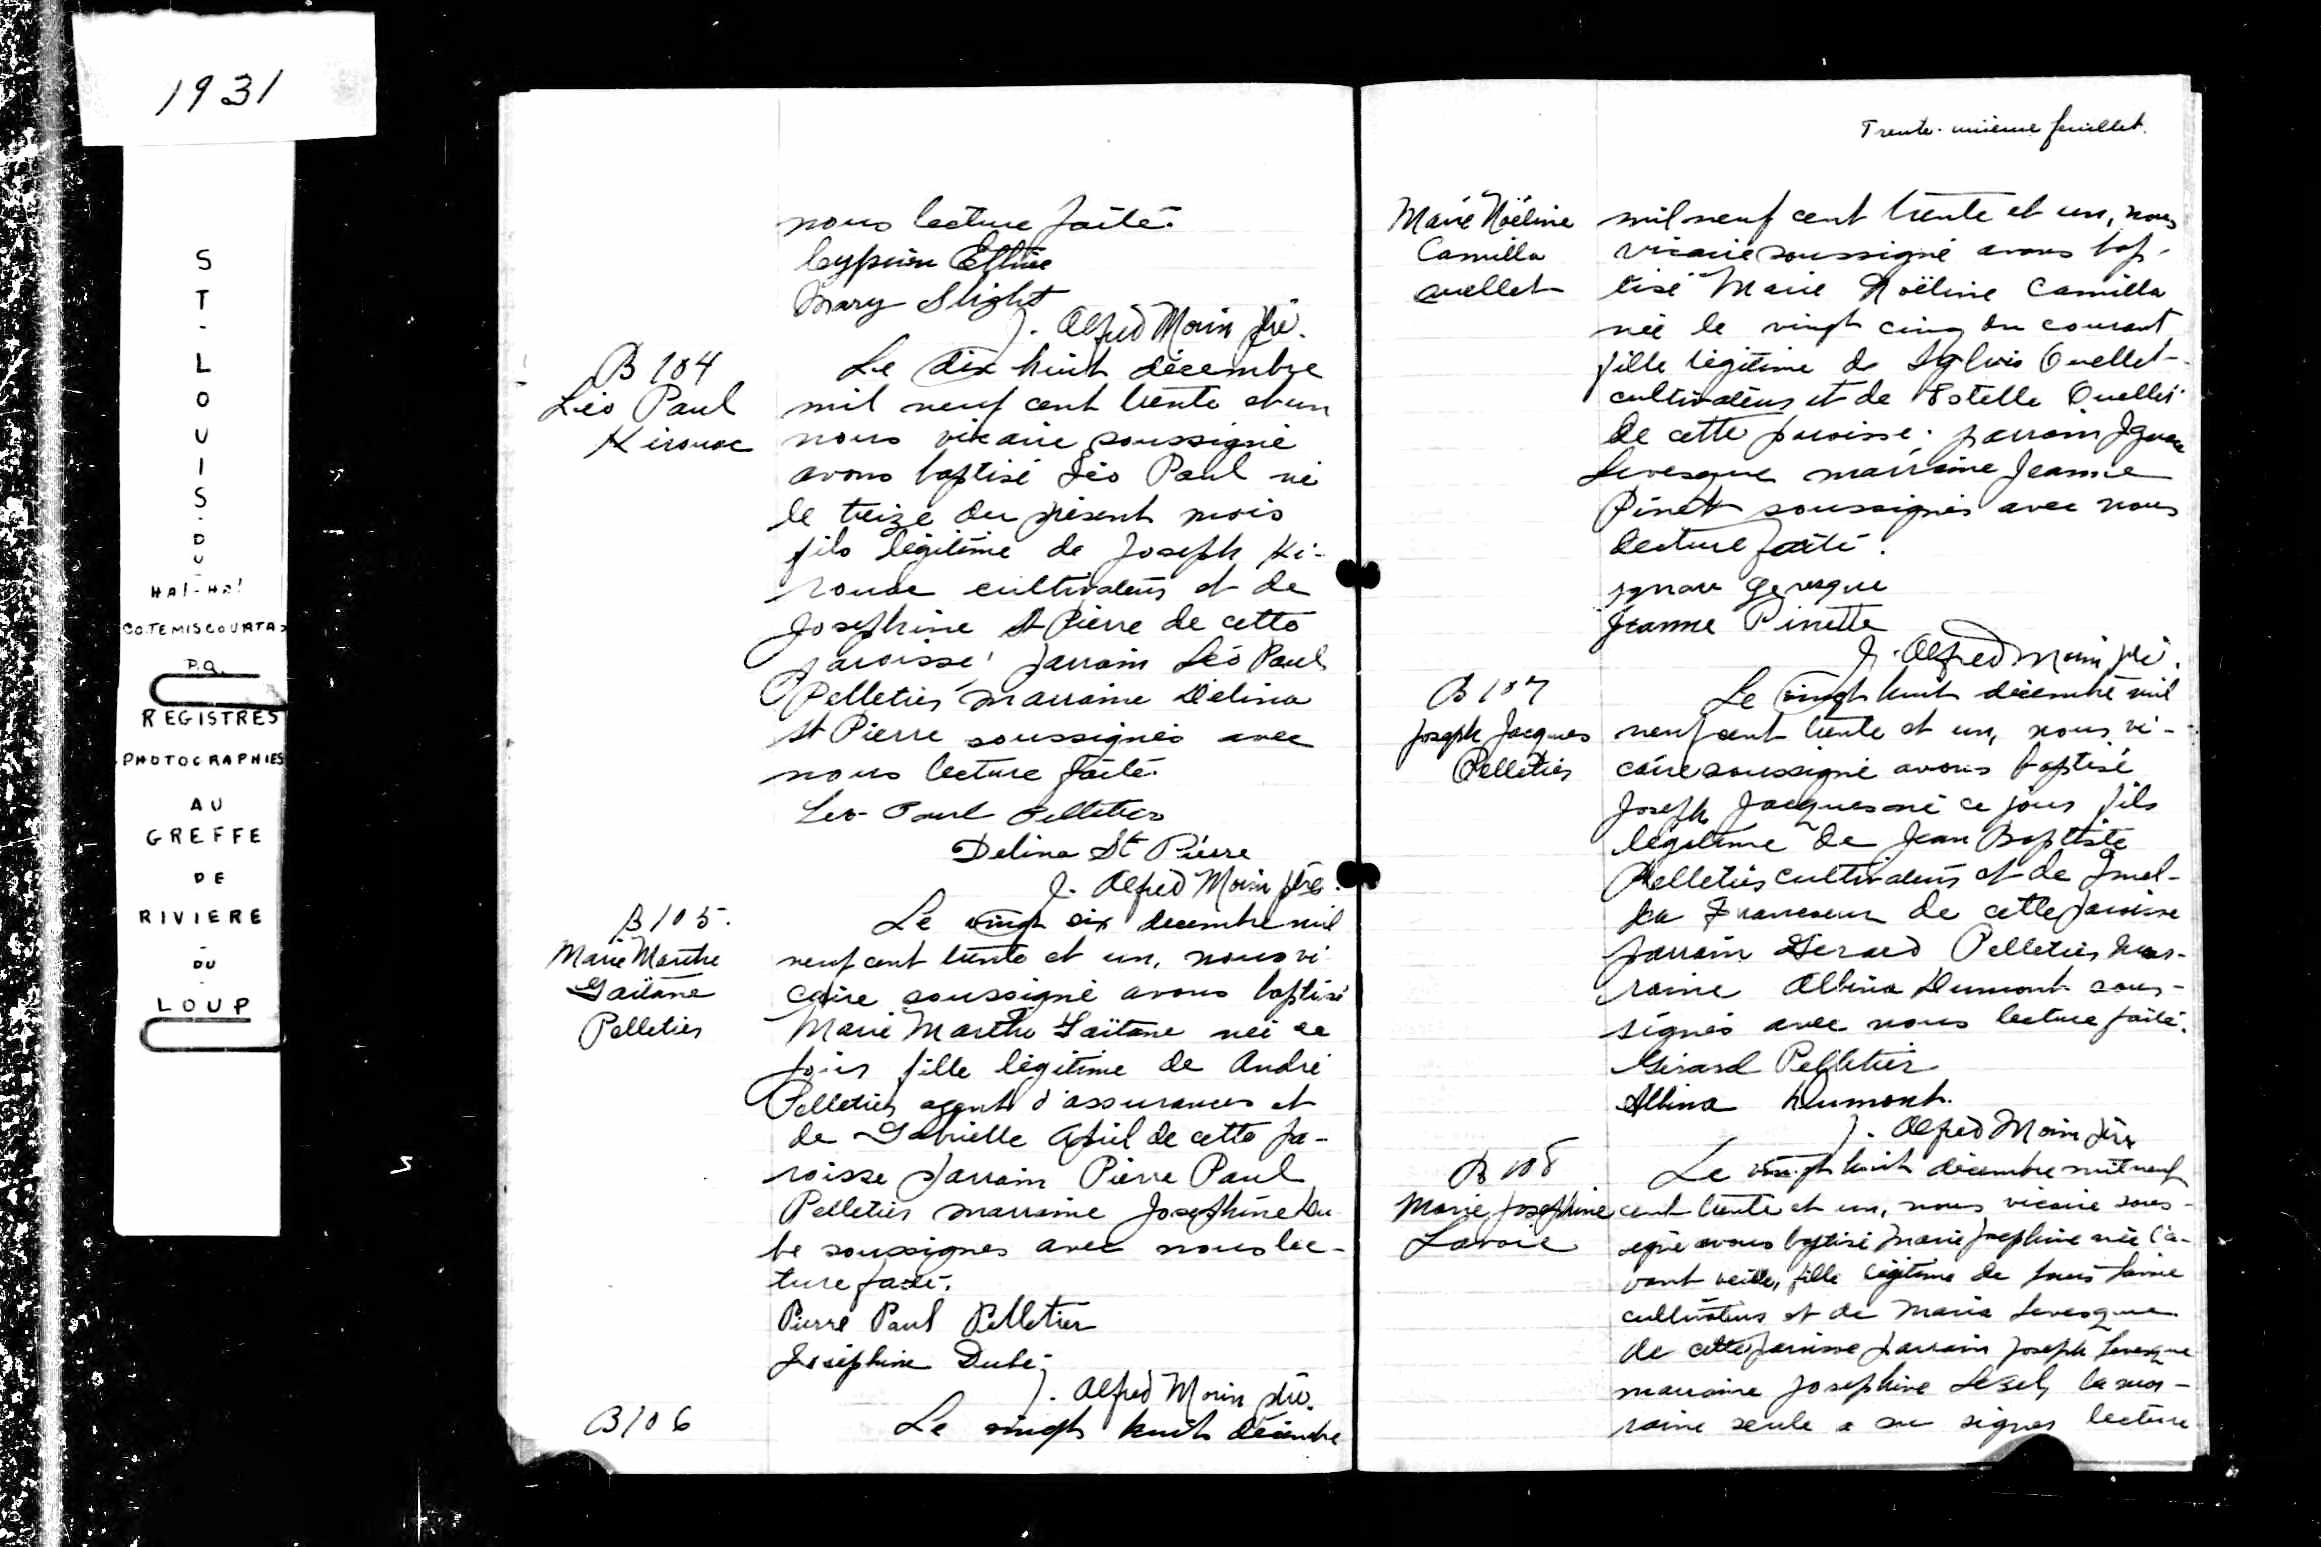 1931
ST-LOUIS-DU-
HA!-HA!
CO.TEMISCOUATA
P.Q.
REGISTRES
PHOTOGRAPHIES
AU
GREFFE
DE
RIVIERE
-
DU
-
LOUP
nous lecture faite.
Mary Slight
J. Alfred Morin ptre.
B 104
Léo Paul
Kirouac
Le dix huit décembre
mil neuf cent trente et un
nous vicaire soussigné
avons baptisé Léo Paul né
le treize du présent mois
fils légitime de Joseph Ki-
rouac cultivateur et de
Josephine St Pierre de cette
paroisse, parrain Léo Paul
Pelletier, marraine Délina
St Pierre soussignés avec
nous lecture faite.
Leo-Paul Pelletier
Delina St Pierre
J. Alfred Morin ptre.
B 105.
Marie Marthe
Gaëtane
Pelletier
Le vingt six decembre mil
neuf cent trente et un, nous vi
caire soussigné avons baptisé
Marie Marthe Gaëtane née ce
jour fille légitime de André
Pelletier agent d'assurances et
de Gabrielle April de cette pa-
roisse parrain Pierre Paul
Pelletier marraine Josephine Du
be soussignes avec nous lec-
ture faite.
Pierre Paul Pelletier
Joséphine Dubé
J. Alfred Morin ptre.
B 106
Le vingt huit décembre
Trente-unième feuillet.
Marie Noëline
Camilla
Ouellet
mil neuf cent trente et un, nous
vicaire soussigné avons bap-
tisé Marie Noëline Camilla
née le vingt cinq du courant
fille légitime de Sylvio Ouellet
cultivateur et de Estelle Ouellet
de cette paroisse. parrain Ignace
Levesque marraine Jeanne
Pinett soussignés avec nous
lecture faite.
Jeanne Pinette
J. Alfred Morin ptre.
B 107
Joseph Jacques
Pelletier
Le vingt huit décembre mil
neuf cent trente et un, nous vi-
caire soussigné avons baptisé
Joseph Jacques né ce jour fils
légitime de Jean Baptiste
Pelletier cultivateur et de Imel-
da Francoeur de cette paroisse
parrain Gerard Pelletier mar-
raine Albina Dumont sous-
signés avec nous lecture faite.
Gérard Pelletier
Albina Dumont.
J. Alfred Morin ptre
B 108
Marie Josephine
Lavoie
Le vingt huit décembre mil neuf
cent trente et un, nous vicaire sous-
signé avons baptisé Marie Josephine née l'a-
vant veille, fille légitime de Louis Lavoie
cultivateur et de Maria Levesque
de cette paroisse parrain Joseph Levesque
marraine Josephine Lebel, la mar-
raine seule a su signer lecture